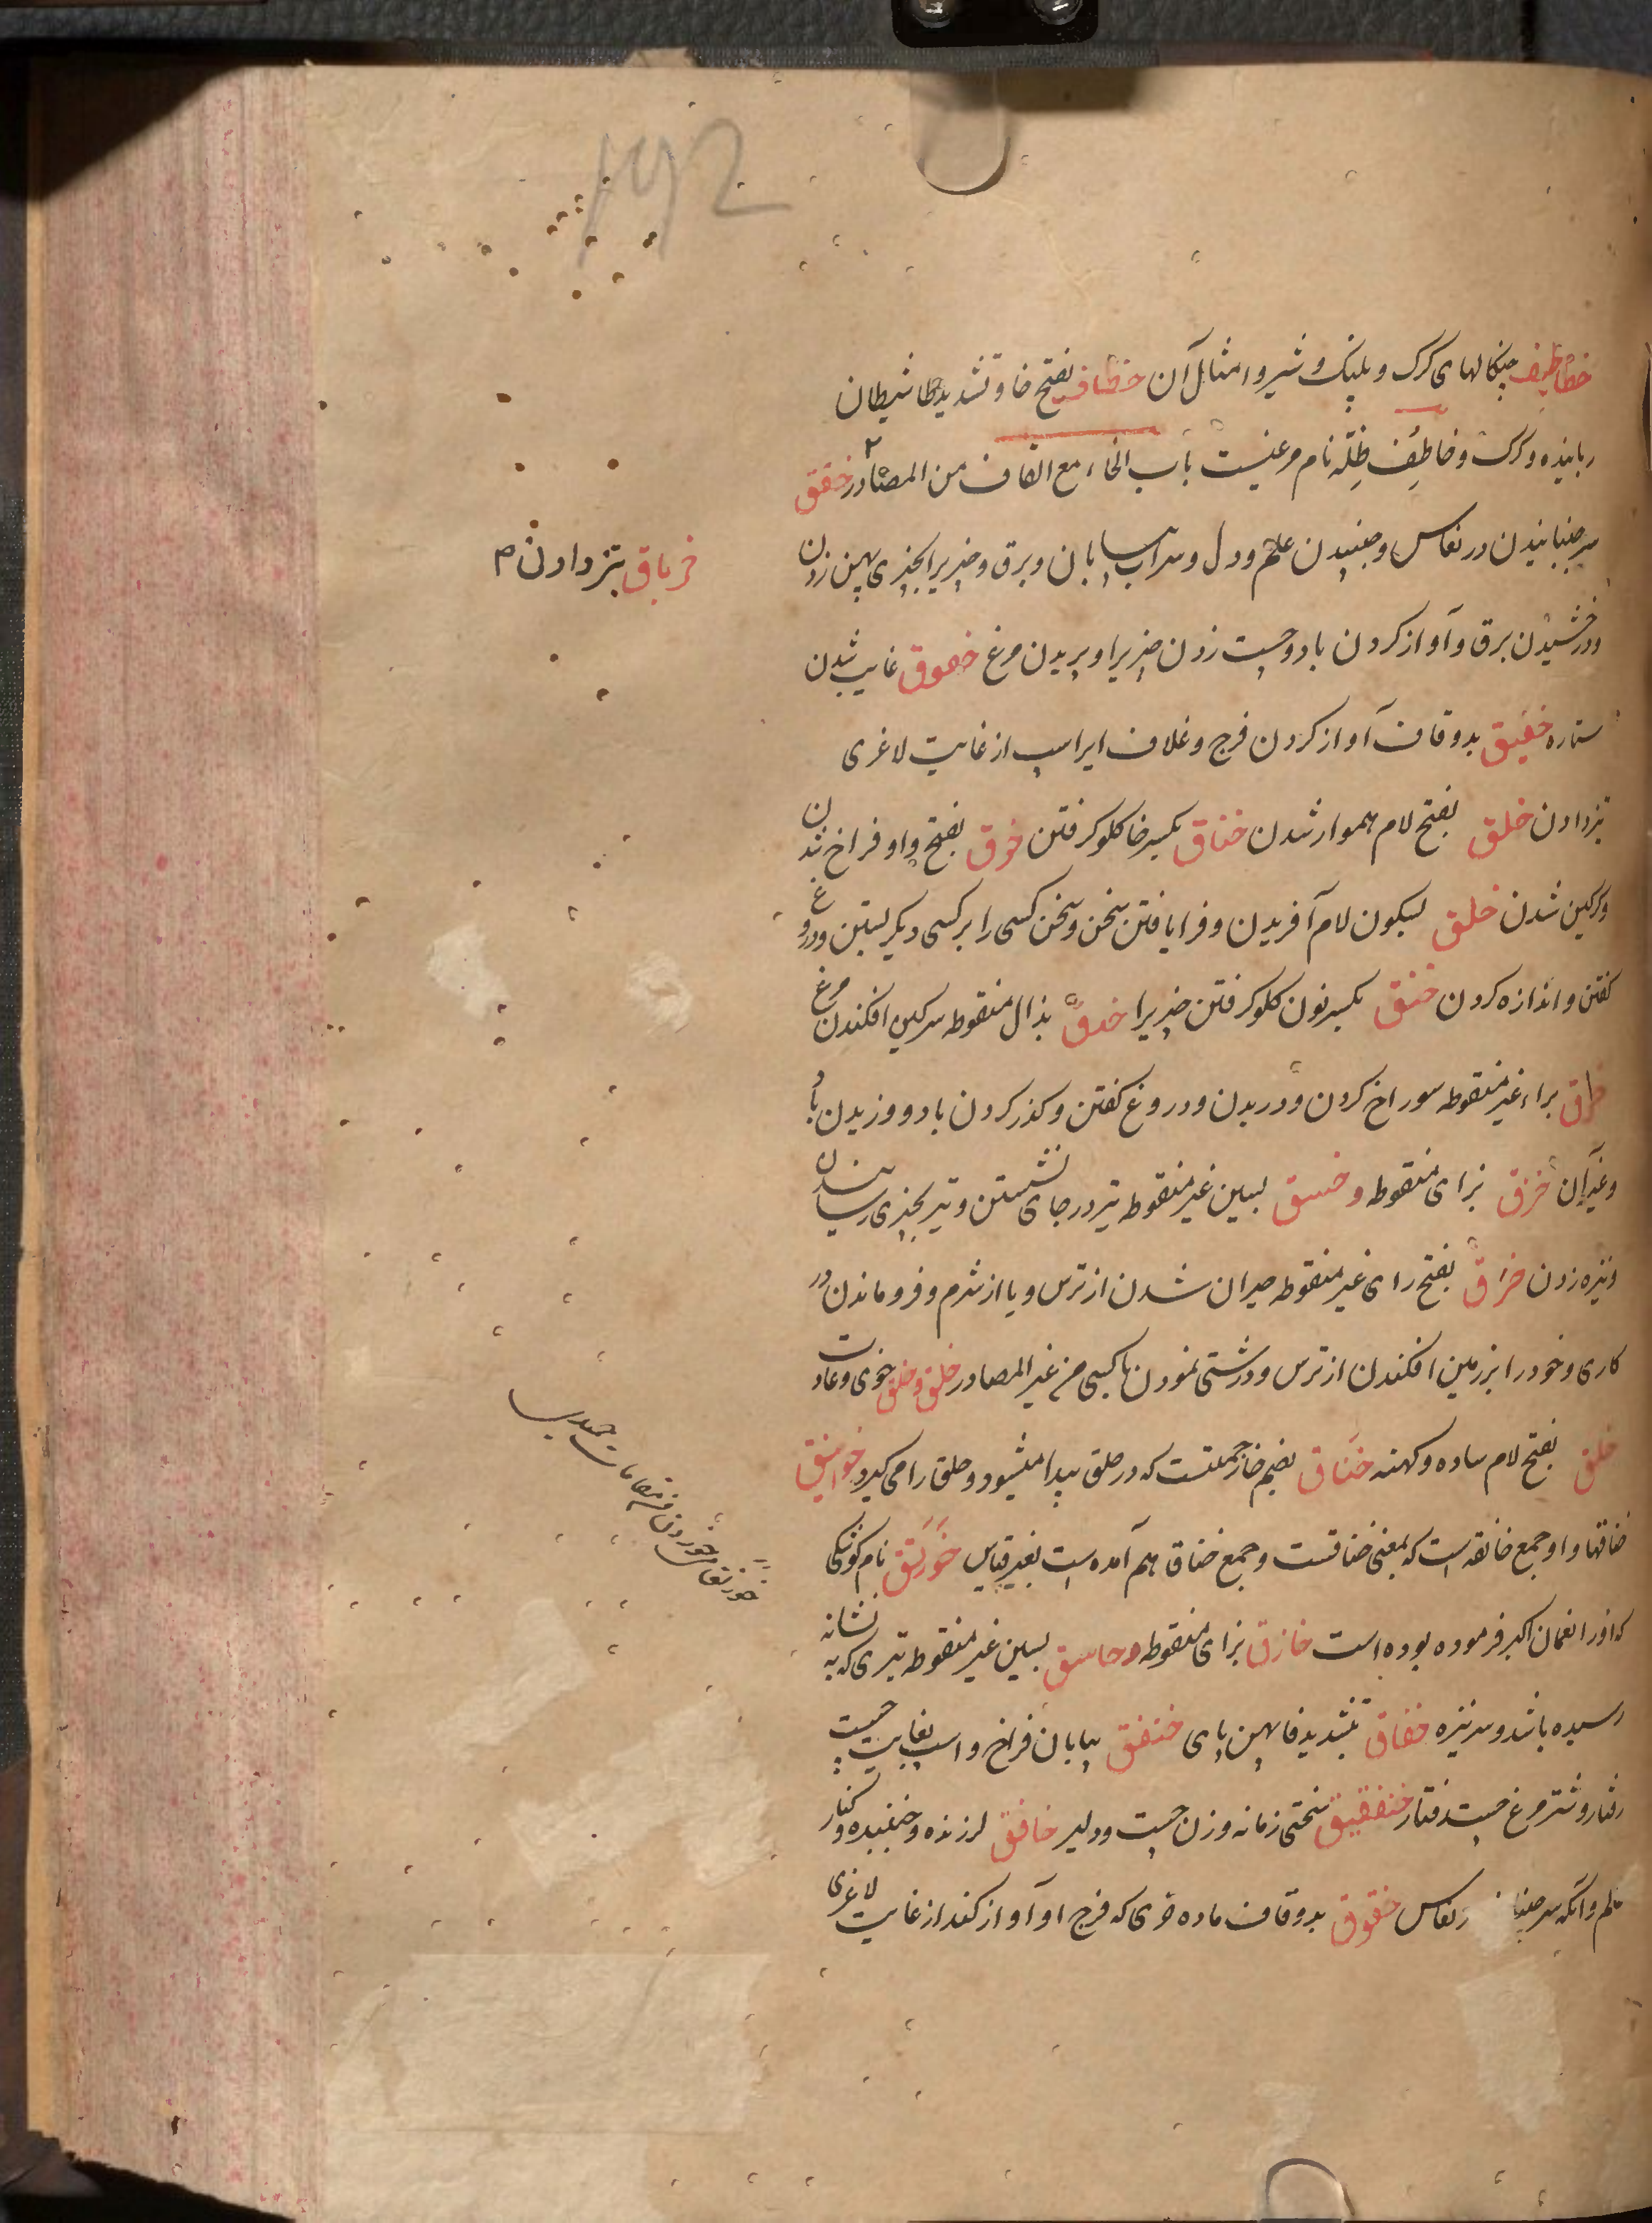 192
خطاطیف چنکالهای کرک و پلنک و شیر و امثال آن خطاف بفتح خا و تشدید طا شیطان
رباینده و کرک و خاطِف ظِلّه نام مرغیست باب الخاء مع القاف من المصادر خفق
سر جنبانیدن در نعاس و جنبیدن علم و دل و سراب بیابان و برق و چیزیرا بچیزی پهن زدن
و درخشیدن برق و آواز کردن باد و چست زدن چیزیرا و پریدن مرغ خفوق غایب شدن
ستاره خقیق بدو قاف آواز کردن فرج و غلاف ایر اسب از غایت لاغری
تیز دادن خلق بفتح لام هموار شدن خناق بکسر خا کلو کرفتن خوق بفتح واو فراخ شدن
و کرکین شدن خلق بسکون لام آفریدن و فرا یافتن سخن و سخن کسی را بر کسی دیکر بستن و دروغ
کفتن و اندازه کردن خنق بکسر نون کلو کرفتن چیزیرا خذق بذال منقوطه سرکین افکندن مرغ
خرق براء غیر منقوطه سوراخ کردن و دریدن و دروغ کفتن و کذر کردن باد و وزیدن باد
و غیر آن خزق بزای منقوطه و خسق بسین غیر منقوطه تیر در جای نشستن و تیر بچیزی رسانیدن
و نیزه زدن خرق بفتح رای غیر منقوطه حیران شدن از ترس و یا از شرم و فرو ماندن در
کاری و خود را بر زمین افکندن از ترس و درشتی نمودن با کسی من غیر المصادر خلق و خلق خوی و عادت
خلق بفتح لام ساده و کهنه خناق بضم خا زحمتیست که در حلق پیدا میشود و حلق را می کیرد خوانیق
خناقها و او جمع خانقه است که بمعنی خناقست و جمع خناق هم آمده است بغیر قیاس خورنق نام کوشکی
که او را نعمان اکبر فرموده بوده است خازق بزای منقوطه و خاسق بسین غیر منقوطه تیری که به نشانه
رسیده باشد و سر نیزه خفاق بتشدید فا پهن پای خنفق بیابان فراخ و اسب بغایت چست
رفتار و شتر مرغ چست رفتار خنفقیق سختی زمانه و زن چست و دلیر خافق لرزنده و جنبنده و کنار
علم و آنکه سر جنباند نعاس خقوق بدو قاف ماده خری که فرج او آواز کند از غایت لاغری
خرباق تیز دادن م